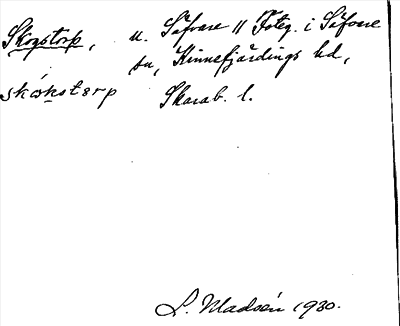 Skogstorp, u. Säfvare // Foteg. i Säfvare
sn, Kinnefjärdings hd,
skókstorp Skarab. l.
L. Madsén 1930.